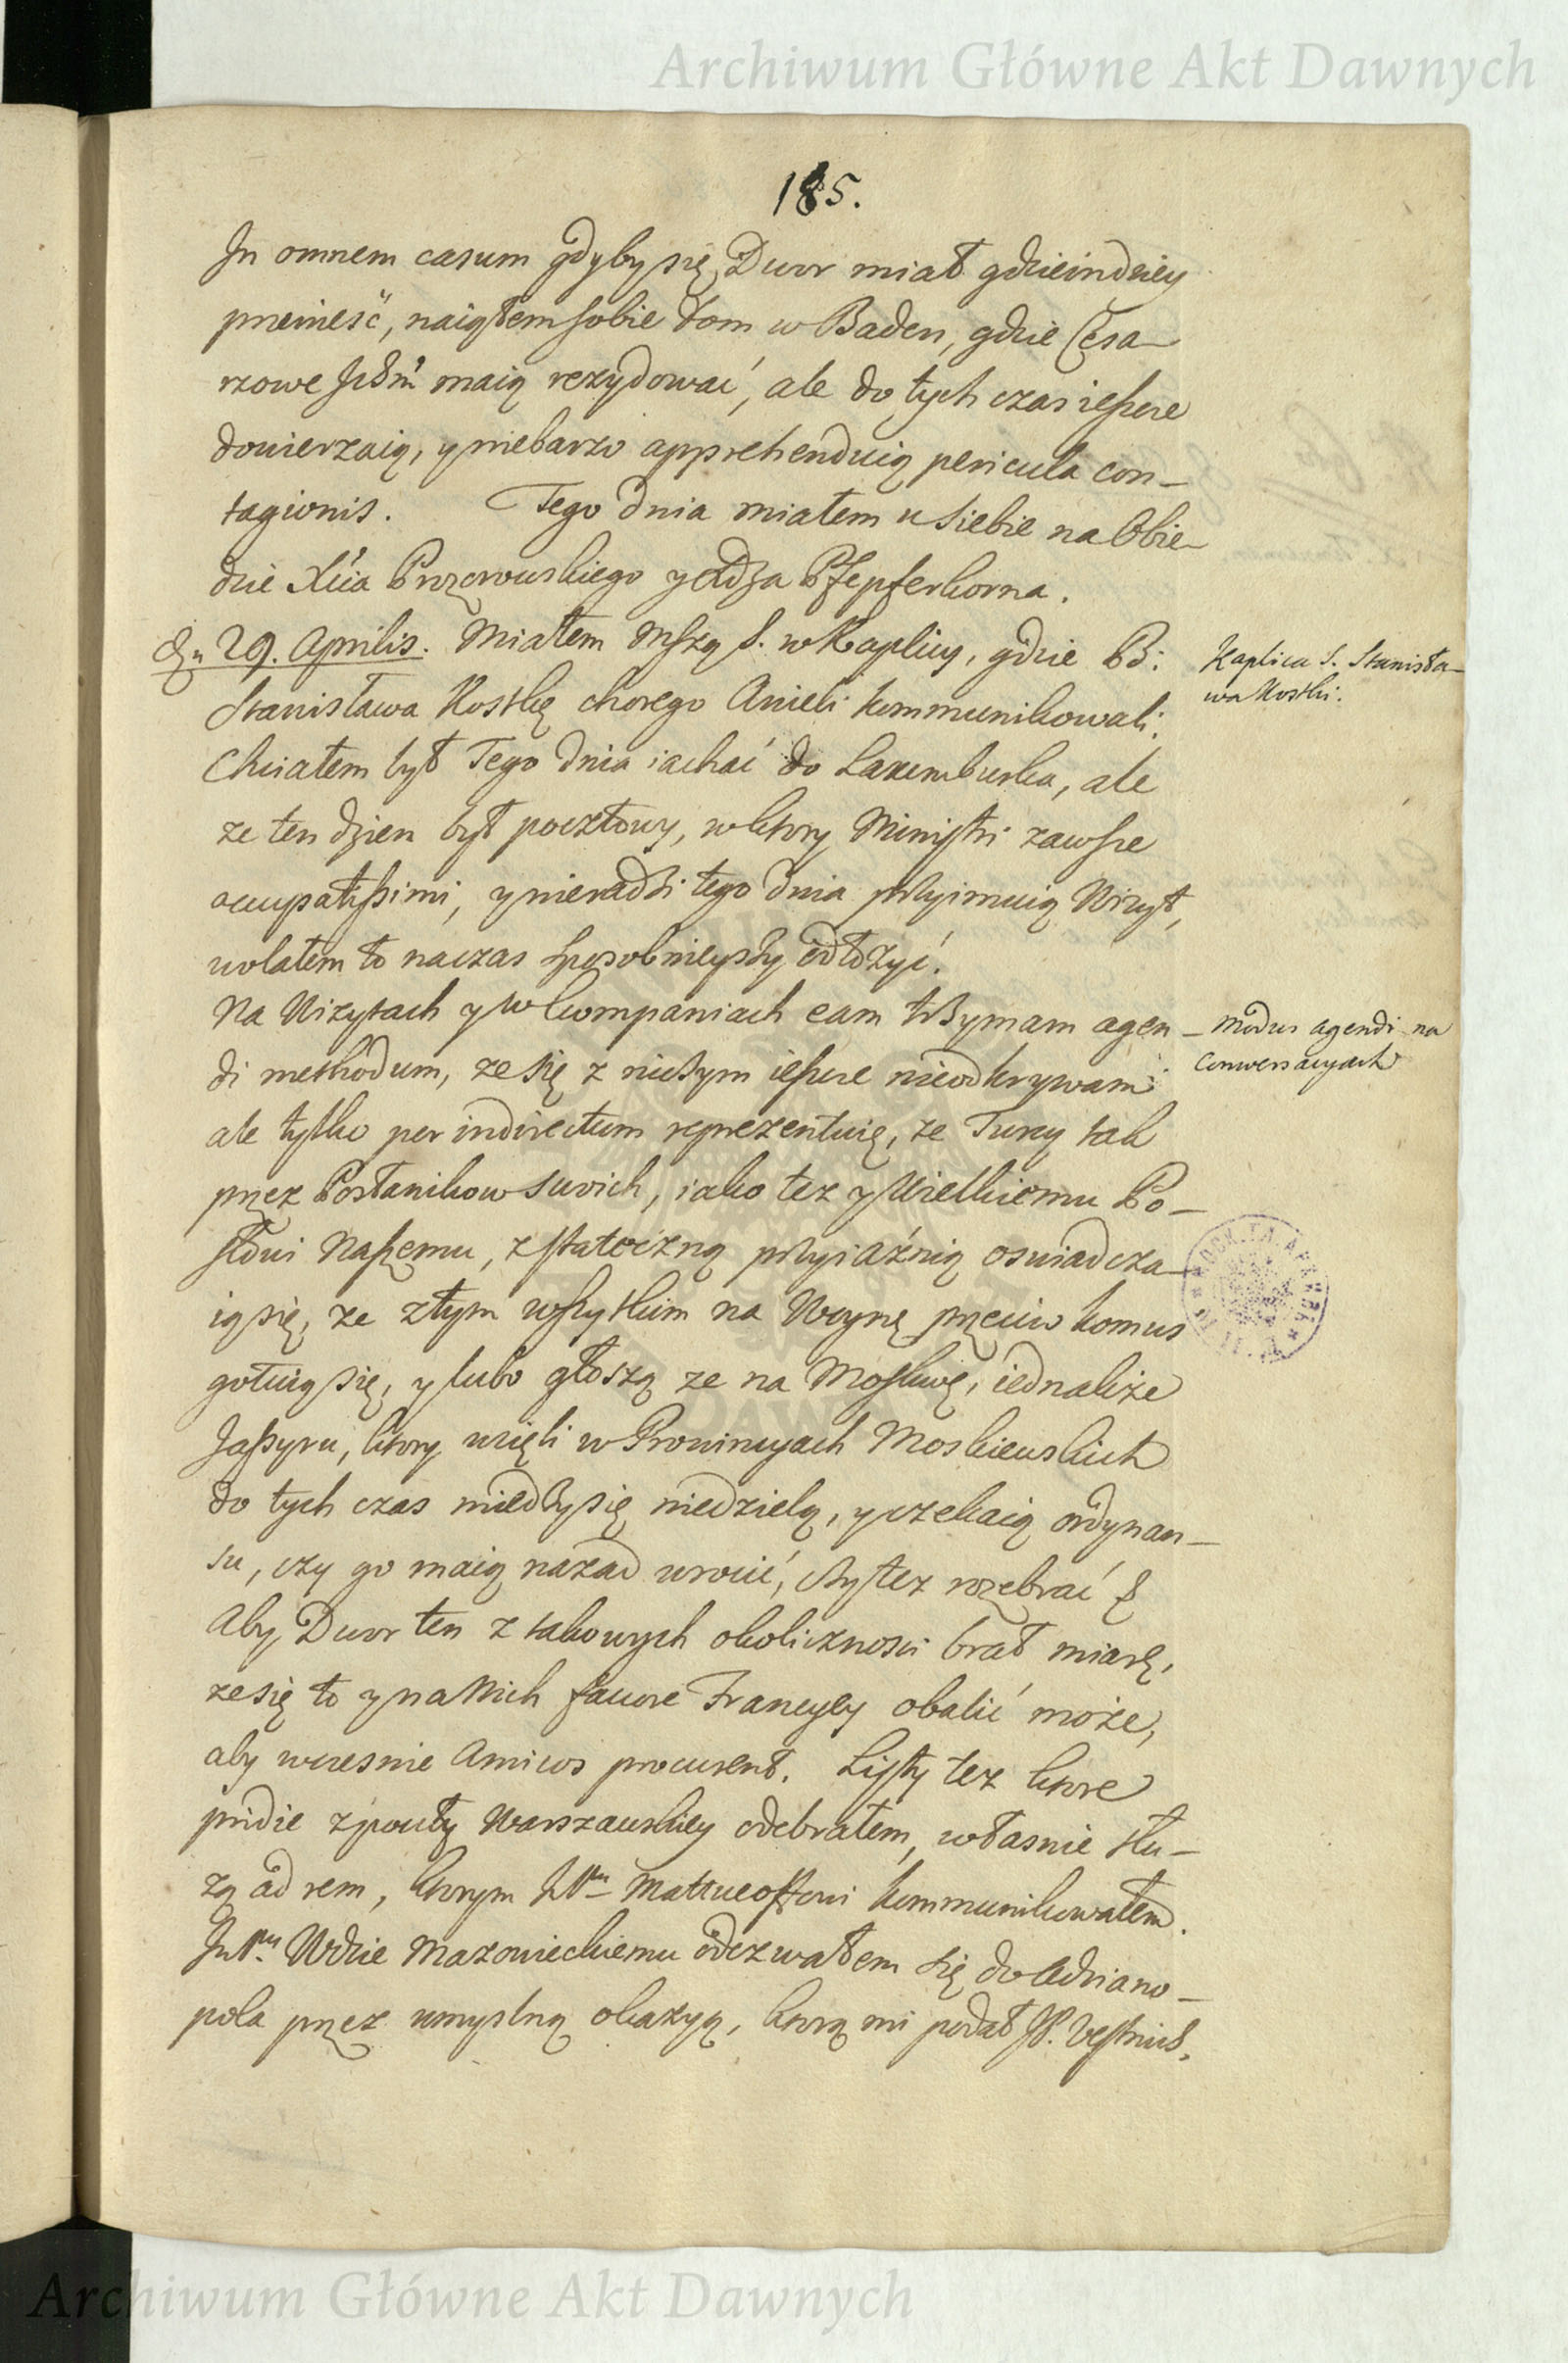 Archiwum Główne Akt Dawnych
185.
In omnem casum gdyby się Dwor miał gdzieindziey
przenieść, naiąłem sobie dom w Baden, gdzie Cesa-
rzowe maią rezydować, ale do tych czas ieszcze
dowierzaią, y niebarzo apprehenduią pericula con-
tagionis. Tego dnia miałem u siebie na Obie-
dzie Xcia Prozorowskiego y Xdza Pfepferkorna.
29. Aprilis. Miałem Mszą S. w Kaplicy, gdzie B:
Stanisława Kostkę chorego Anieli kommunikowali.
Kaplica S. Stanisła-
wa Kostki.
Chciałem był Tego dnia iachać do Laxemburka, ale
ze ten dzien był pocztowy, w ktory Ministri zawsze
occupatissimi, y nieradzi tego dnia przyimuią Wizyt,
wolałem to na czas sposobnieyszy odłożyć.
Na Wizytach y w kompaniach eam trzymam agen-
di methodum, ze się z niczym ieszcze nieodkrywam
Modus agendi na
Conwersacyach
ale tylko per indirectum reprezentuię, ze Turcy tak
przez Posłanikow swoich, iako tez y Wielkiemu Po-
słowi Naszemu, z stateczną przyiaźnią oswiadcza-
ią się, ze z tym wszytkim na Woynę przeciw komus
gotuią się, y lubo głoszą ze na Moskwę, iednakże
Jassyru, ktory wzięli w Prowincyach Moskiewskich
do tych czas miedzy się niedzielą, y czekaią ordynan-
su, czy go maią nazad wrocić, czy tez rozebrać &
Aby Dwor ten z takowych okolicznosci brał miarę,
ze się to y na Nich favore Francyey obalić może,
aby wczesnie Amicos procurent. Listy tez ktore
pridie z poczty Warszawskiey odebrałem, własnie słu-
żą ad rem, ktorym Mattueoffowi kommunikowałem.
Wdzie Mazowieckiemu odezwałem się do Adriano-
pola przez umyslną okazyą, ktorą mi podał JP.
Archiwum Główne Akt Dawnych